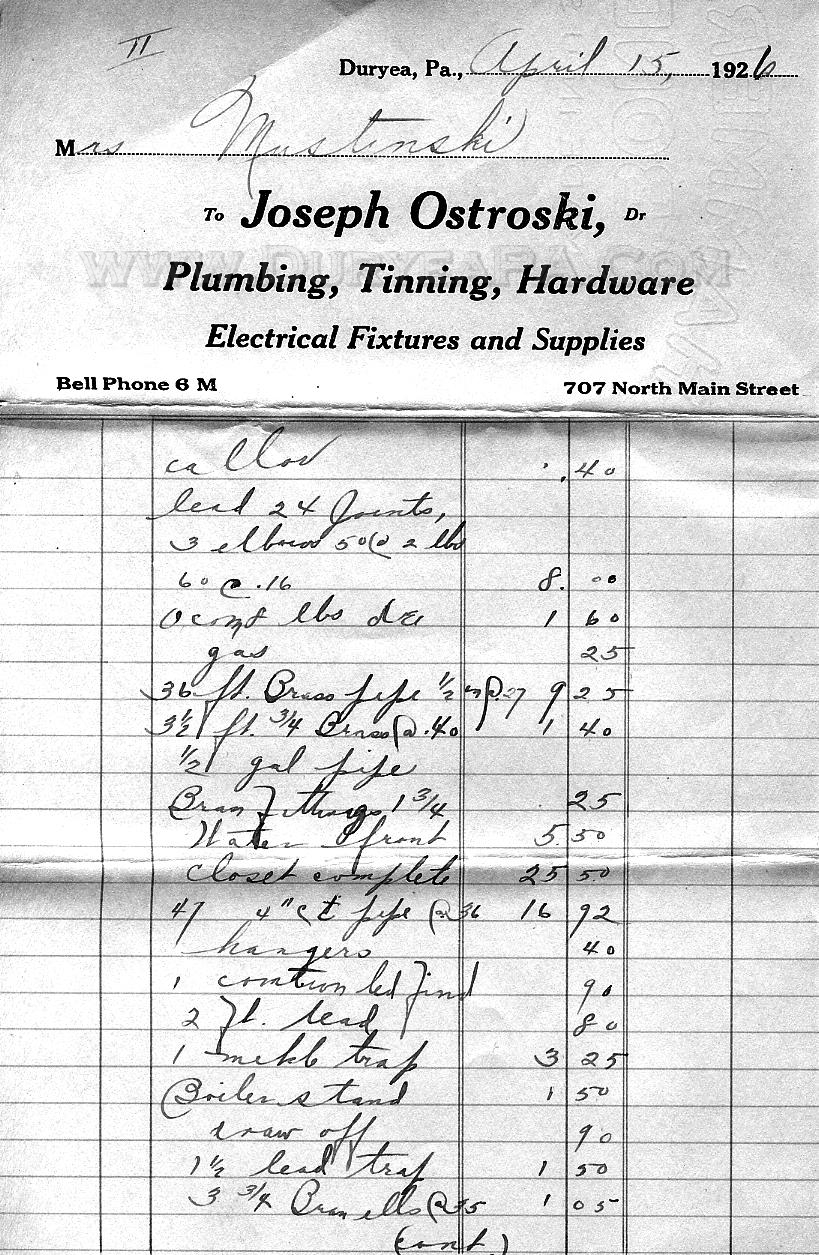 II
Duryea, Pa., April 15, 1926
Mrs Mustinski
To Joseph Ostroski, Dr
www.DuryeaPA.com
Plumbing, Tinning, Hardware
Electrical Fixtures and Supplies
Bell Phone 6 M 707 North Main Street
.40
lead 24 Joints,
3 elbows 50@ 2 lbs
60 @ .16 8. 00
lbs 1 60
gas 25
36 ft. Brass pipe 1/2 in @.27 9 25
3 1/2 ft. 3/4 Brass @ .40 1 40
1/2 gal pipe
Bran Fittings 1 3/4 25
Water front 5.50
closet complete 25 50
47 4" pipe @ 36 16 92
hangers 40
1 90
2 ft. lead 80
1 trap 3 25
Boiler stand 1 50
draw off 90
1 1/2 lead trap 1 50
3 3/4 Bran ells @ 35 1 05
(cont.)